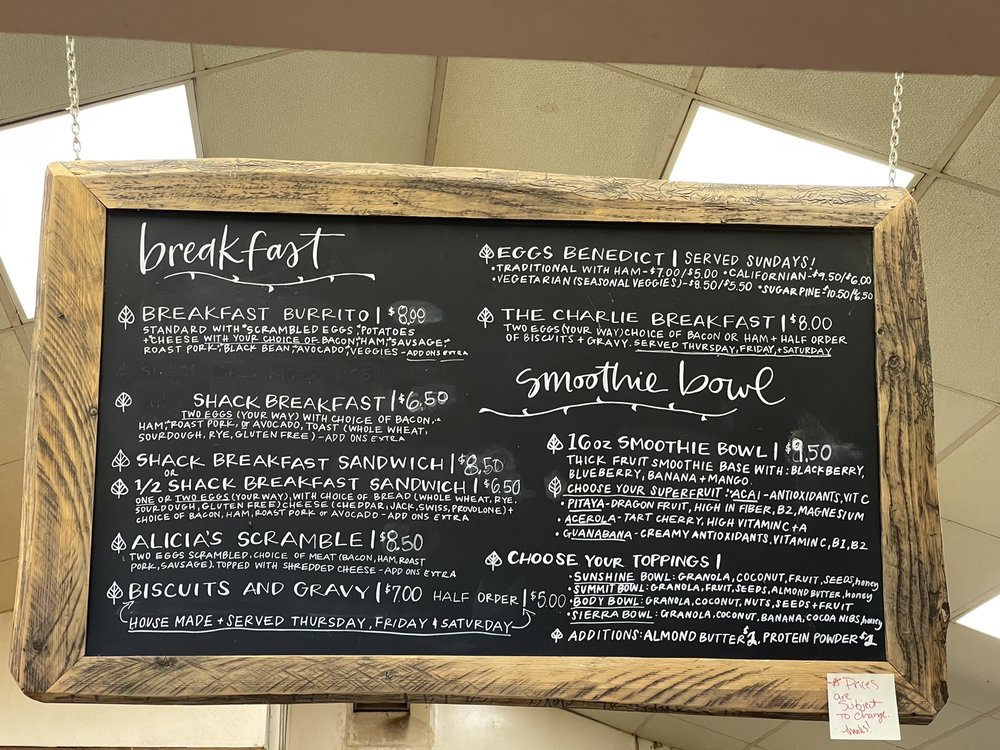 breakfast
BREAKFAST BURRITO | $8.00
STANDARD WITH *SCRAMBLED EGGS *POTATOES
+CHEESE WITH YOUR CHOICE OF BACON, *HAM, *SAUSAGE, *
ROAST PORK, *BLACK BEAN, *AVOCADO, *VEGGIES - ADD ONS EXTRA
SHACK BREAKFAST | $6.50
TWO EGGS (YOUR WAY) WITH CHOICE OF BACON, *
HAM, *ROAST PORK, OR AVOCADO, TOAST (WHOLE WHEAT,
SOURDOUGH, RYE, GLUTEN FREE) - ADD ONS EXTRA
SHACK BREAKFAST SANDWICH | $8.50
OR
1/2 SHACK BREAKFAST SANDWICH | $6.50
ONE OR TWO EGGS (YOUR WAY), WITH CHOICE OF BREAD (WHOLE WHEAT, RYE,
SOURDOUGH, GLUTEN FREE) CHEESE (CHEDDAR, JACK, SWISS, PROVOLONE) +
CHOICE OF BACON, HAM, ROAST PORK OR AVOCADO - ADD ONS EXTRA
ALICIA'S SCRAMBLE | $8.50
TWO EGGS SCRAMBLED. CHOICE OF MEAT (BACON, HAM, ROAST
PORK, SAUSAGE). TOPPED WITH SHREDDED CHEESE - ADD ONS EXTRA
BISCUITS AND GRAVY | $7.00 HALF ORDER | $5.00
HOUSE MADE + SERVED THURSDAY, FRIDAY & SATURDAY
EGGS BENEDICT | SERVED SUNDAYS!
• TRADITIONAL WITH HAM - $7.00/$5.00 • CALIFORNIAN - $9.50/$6.00
• VEGETARIAN (SEASONAL VEGGIES) - $8.50/$5.50 • SUGARPINE - $10.50/$6.50
THE CHARLIE BREAKFAST | $8.00
TWO EGGS (YOUR WAY) CHOICE OF BACON OR HAM + HALF ORDER
OF BISCUITS + GRAVY. SERVED THURSDAY, FRIDAY, + SATURDAY
smoothie bowl
16oz SMOOTHIE BOWL | $9.50
THICK FRUIT SMOOTHIE BASE WITH: BLACKBERRY,
BLUEBERRY, BANANA + MANGO.
CHOOSE YOUR SUPERFRUIT: • ACAI - ANTIOXIDANTS, VIT C
• PITAYA - DRAGON FRUIT, HIGH IN FIBER, B2, MAGNESIUM
• ACEROLA - TART CHERRY, HIGH VITAMIN C + A
• GUANABANA - CREAMY ANTIOXIDANTS, VITAMIN C, B1, B2
CHOOSE YOUR TOPPINGS |
• SUNSHINE BOWL: GRANOLA, COCONUT, FRUIT, SEEDS, honey
• SUMMIT BOWL: GRANOLA, FRUIT, SEEDS, ALMOND BUTTER, honey
• BODY BOWL: GRANOLA, COCONUT, NUTS, SEEDS + FRUIT
• SIERRA BOWL: GRANOLA, COCONUT, BANANA, COCOA NIBS, honey
ADDITIONS: ALMOND BUTTER $1, PROTEIN POWDER $1
* Prices
are
Subject
TO Change.
thanks!